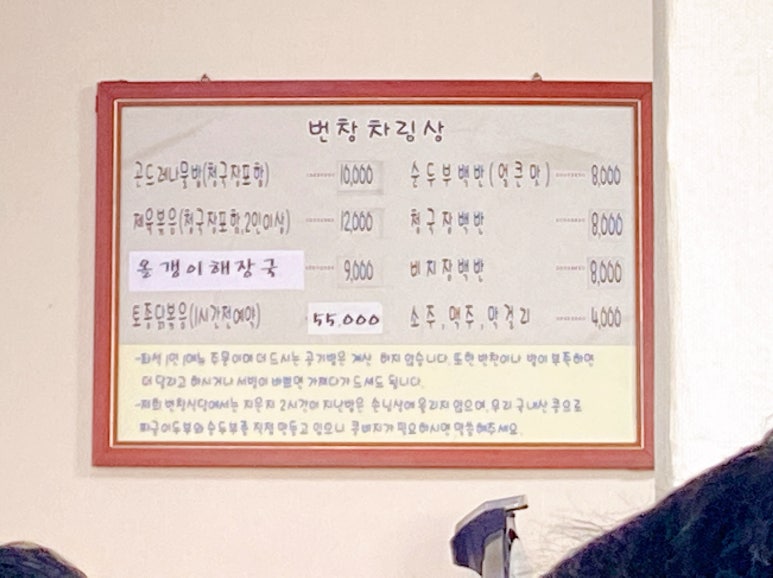 번창차림상
곤드레나물밥(청국장포함) 10,000
순두부백반(얼큰맛) 8,000
제육볶음(청국장포함,2인이상) 12,000
청국장백반 8,000
올갱이해장국 9,000
비지장백반 8,000
토종닭볶음(1시간전예약) 55,000
소주,맥주,막걸리 4,000
-좌석 1인 1메뉴 주문이며 더 드시는 공기밥은 계산 하지 않습니다. 또한 반찬이나 밥이 부족하면
더 달라고 하시거나 서빙이 바쁘면 가져다가 드셔도 됩니다.
-저희 번창식당에서는 지은지 2시간이 지난밥은 손님상에 올리지 않으며, 우리 국내산 콩으로
두부와 순두부를 직접 만들고 있으니 콩비지가 필요하시면 말씀해주세요.